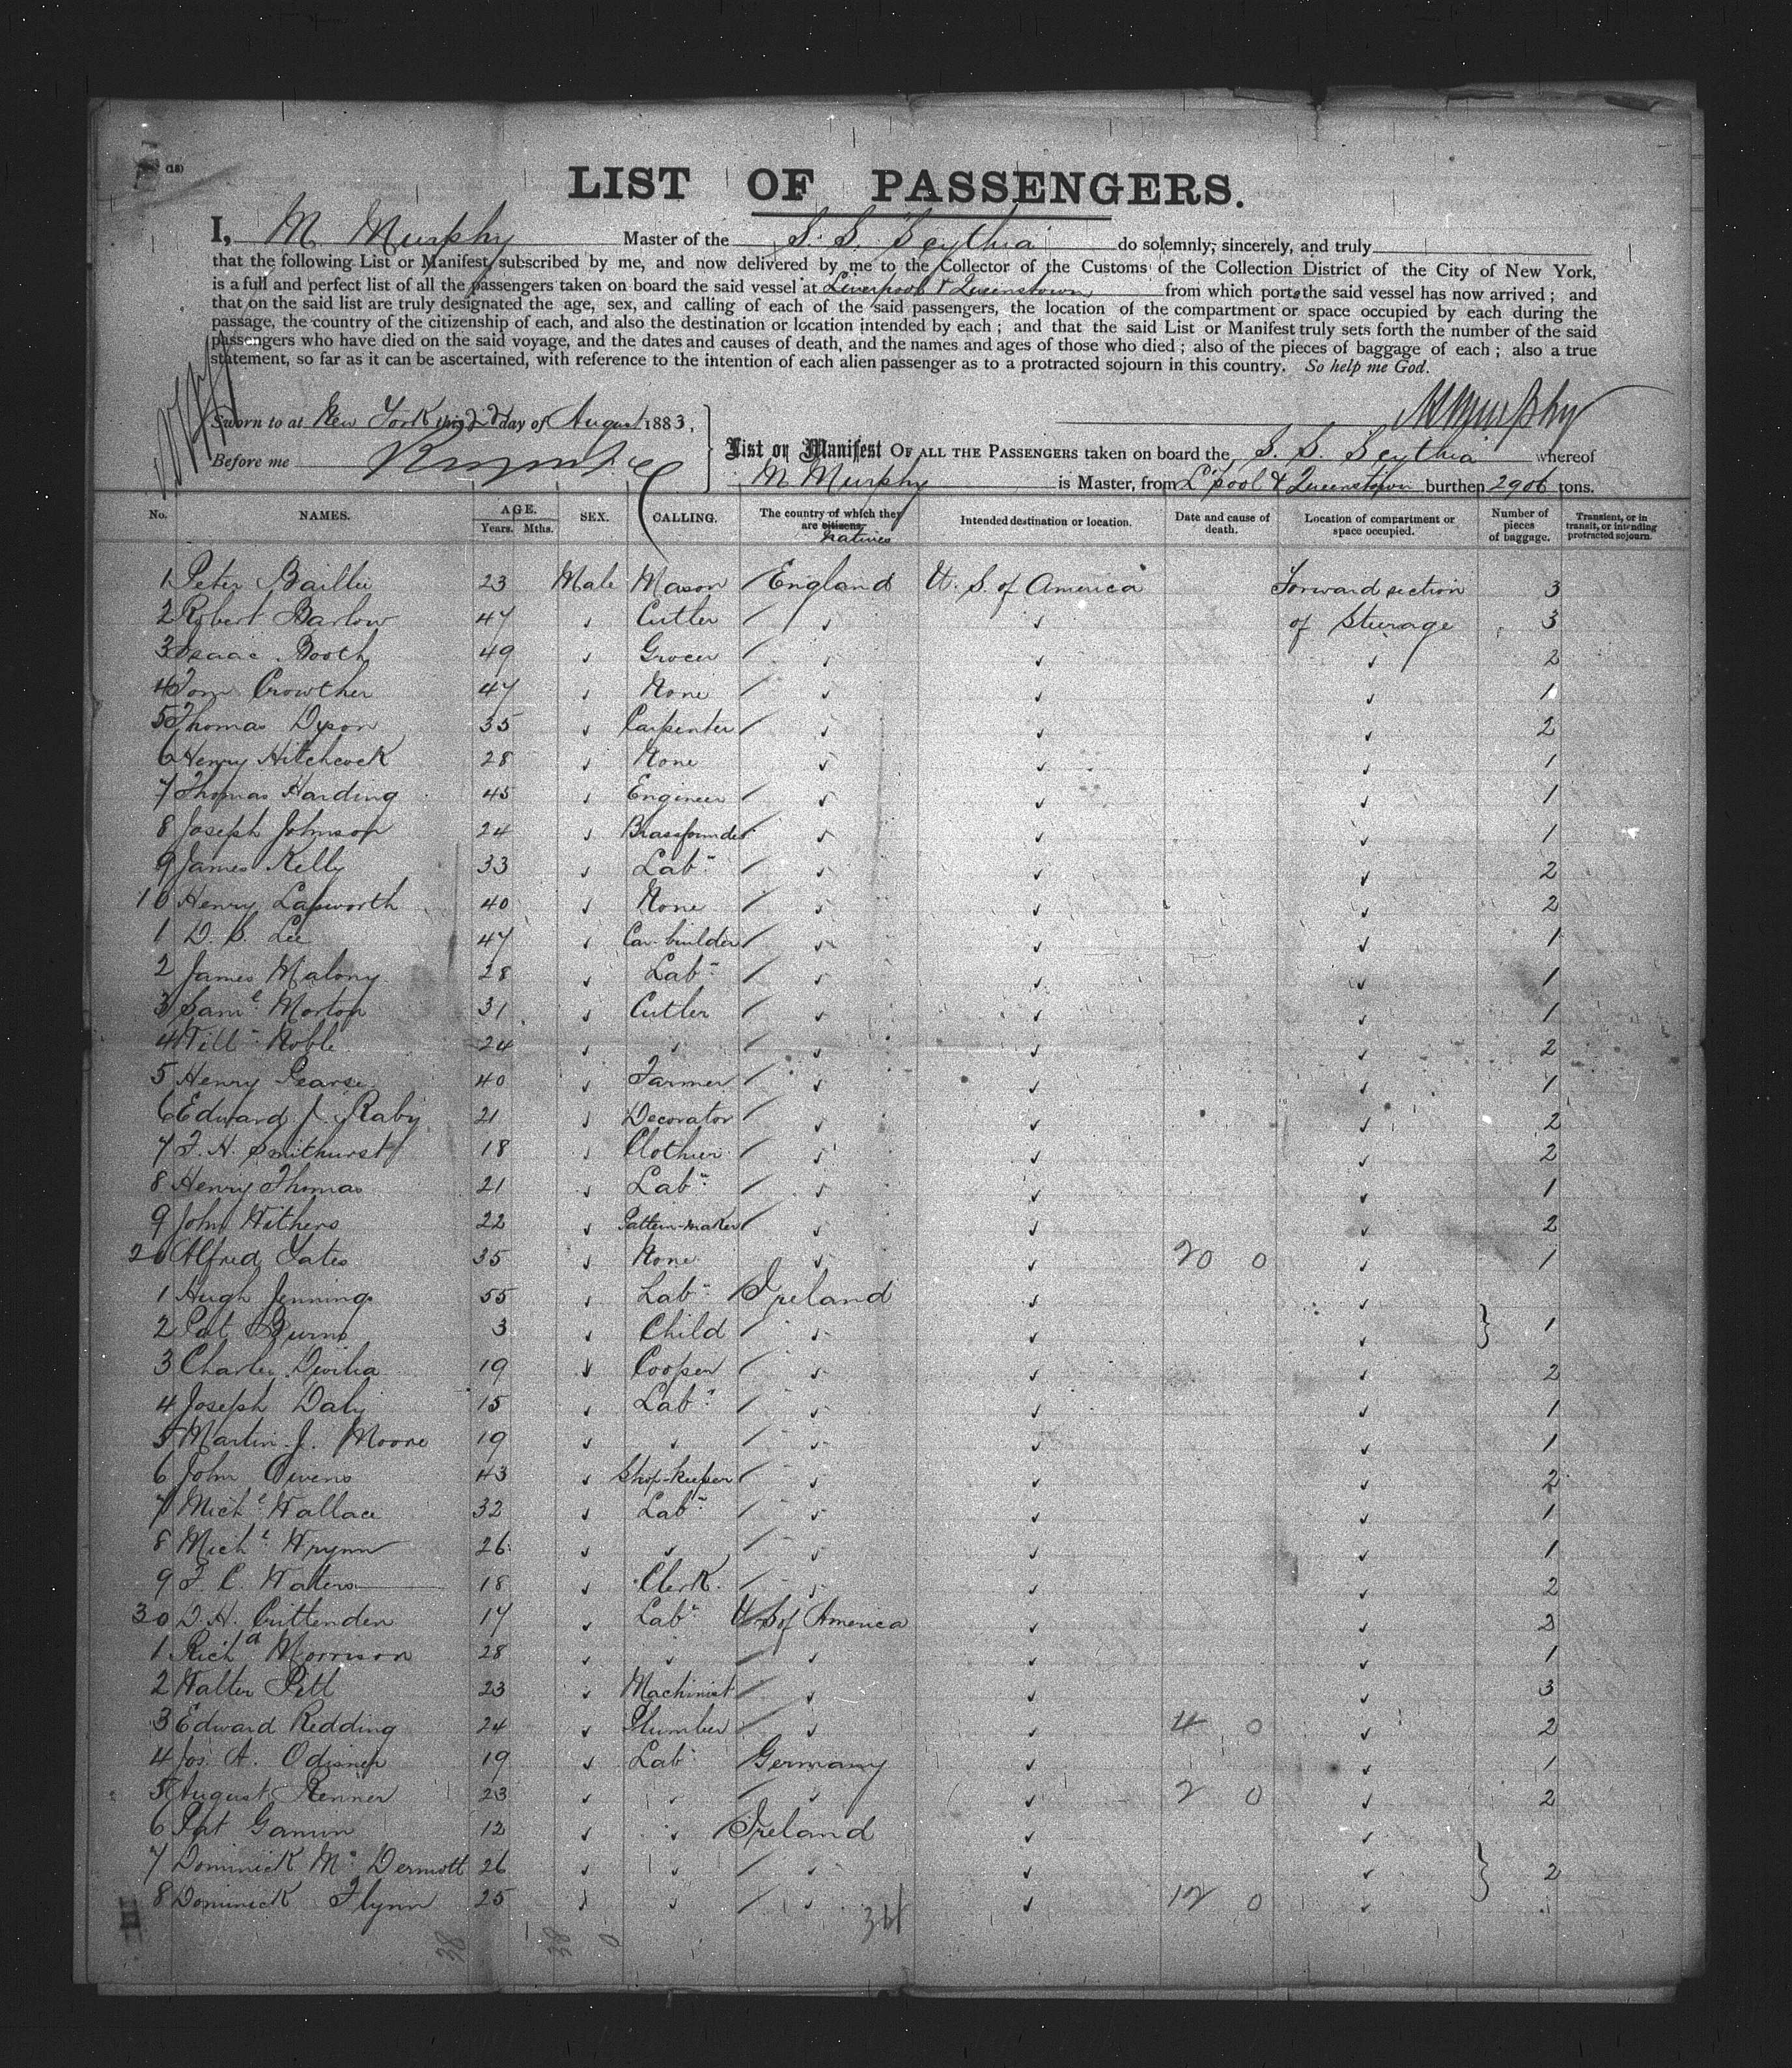 (18)
LIST OF PASSENGERS.
I, M. Murphy Master of the S. S. Scythia do solemnly, sincerely, and truly
that the following List or Manifest, subscribed by me, and now delivered by me to the Collector of the Customs of the Collection District of the City of New York,
is a full and perfect list of all the passengers taken on board the said vessel at Liverpool & Queenstown, from which ports the said vessel has now arrived; and
that on the said list are truly designated the age, sex, and calling of each of the said passengers, the location of the compartment or space occupied by each during the
passage, the country of the citizenship of each, and also the destination or location intended by each; and that the said List or Manifest truly sets forth the number of the said
passengers who have died on the said voyage, and the dates and causes of death, and the names and ages of those who died; also of the pieces of baggage of each; also a true
statement, so far as it can be ascertained, with reference to the intention of each alien passenger as to a protracted sojourn in this country. So help me God.
M Murphy
Sworn to at New York this 22d day of August 1883,
Before me
List or Manifest OF ALL THE PASSENGERS taken on board the S. S. Scythia whereof
M Murphy is Master, from L'pool & Queenstown burthen 2906 tons.
No. NAMES. AGE. Years. Mths. SEX. CALLING. The country of which they are citizens, natives Intended destination or location. Date and cause of death. Location of compartment or space occupied. Number of pieces of baggage. Transient, or in transit, or intending protracted sojourn.
1 Peter Baillie 23 Male Mason / England U. S. of America Forward section 3
2 Robert Barlow 47 " Cutler / " " of Steerage 3
3 Isaac Booth 49 " Grocer " " " 2
4 Tom Crowther 47 " None / " " " 1
5 Thomas Dyson 35 " Carpenter / " " " 2
6 Henry Hitchcock 28 " None " " " 1
7 Thomas Harding 45 " Engineer / " " " 1
8 Joseph Johnson 24 " Brassfounder " " " 1
9 James Kelly 33 " Labr " " " 2
10 Henry Lapworth 40 " None / " " " 2
1 D. B. Lee 47 " Car-builder / " " " 1
2 James Malony 28 " Labr / " " " 1
3 Saml Morton 31 " Cutler / " " " 1
4 Willm Noble 24 " " " " " 2
5 Henry Pearse 40 " Farmer / " " " 1
6 Edward J. Raby 21 " Decorator / " " " 2
7 F. H. Smithurst 18 " Clothier / " " " 2
8 Henry Thomas 21 " Labr / " " " 1
9 John Withers 22 " Pattern-maker / " " " 2
20 Alfred Yates 35 " None " " 20 0 " 1
1 Hugh Jennings 55 " Labr / Ireland " "
2 Pat Burns 3 " Child / " " " } 1
3 Charles Divilia 19 " Cooper / " " " 2
4 Joseph Daly 15 " Labr / " " " 1
5 Martin J. Moore 19 " " / " " " 1
6 John Owens 43 " Shop-keeper / " " " 2
7 Michl Wallace 32 " Labr / " " " 1
8 Michl Wrynn 26 " " / " " " 1
9 F. C. Waters 18 " Clerk / " " " 2
30 D. H. Crittenden 17 " Labr U. S. of America " " 2
1 Richd Morrison 28 " " / " " " 1
2 Walter Pell 23 " Machinist / " " " 3
3 Edward Redding 24 " Plumber / " " 4 0 " 2
4 Jos. A. 19 " Labr Germany " " 1
5 August Renner 23 " " / " " 2 0 " 2
6 Pat 12 " " / Ireland " "
7 Dominick McDermott 26 " " / " " " } 2
8 Dominick Flynn 25 " " / " " 12 0 "
38 38 0 34